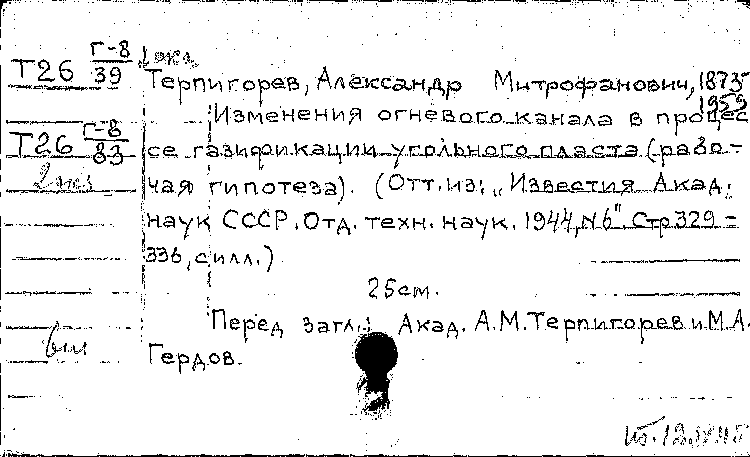 Т26 Г-8/39 2 экз
Терпигорев, Александр Митрофанович, 1873-
1959
Изменения огневого канала в процес
Т26 Г-8/83
се газификации угольного пласта (рабо-
2 экз
чая гипотеза). (Отт. из: „Известия Акад.
наук СССР. Отд. техн. наук. 1944, №6". Стр 329 -
336, с илл.)
25 см.
Перед загл.: Акад. А.М. Терпигорев и М.А.
Гердов.